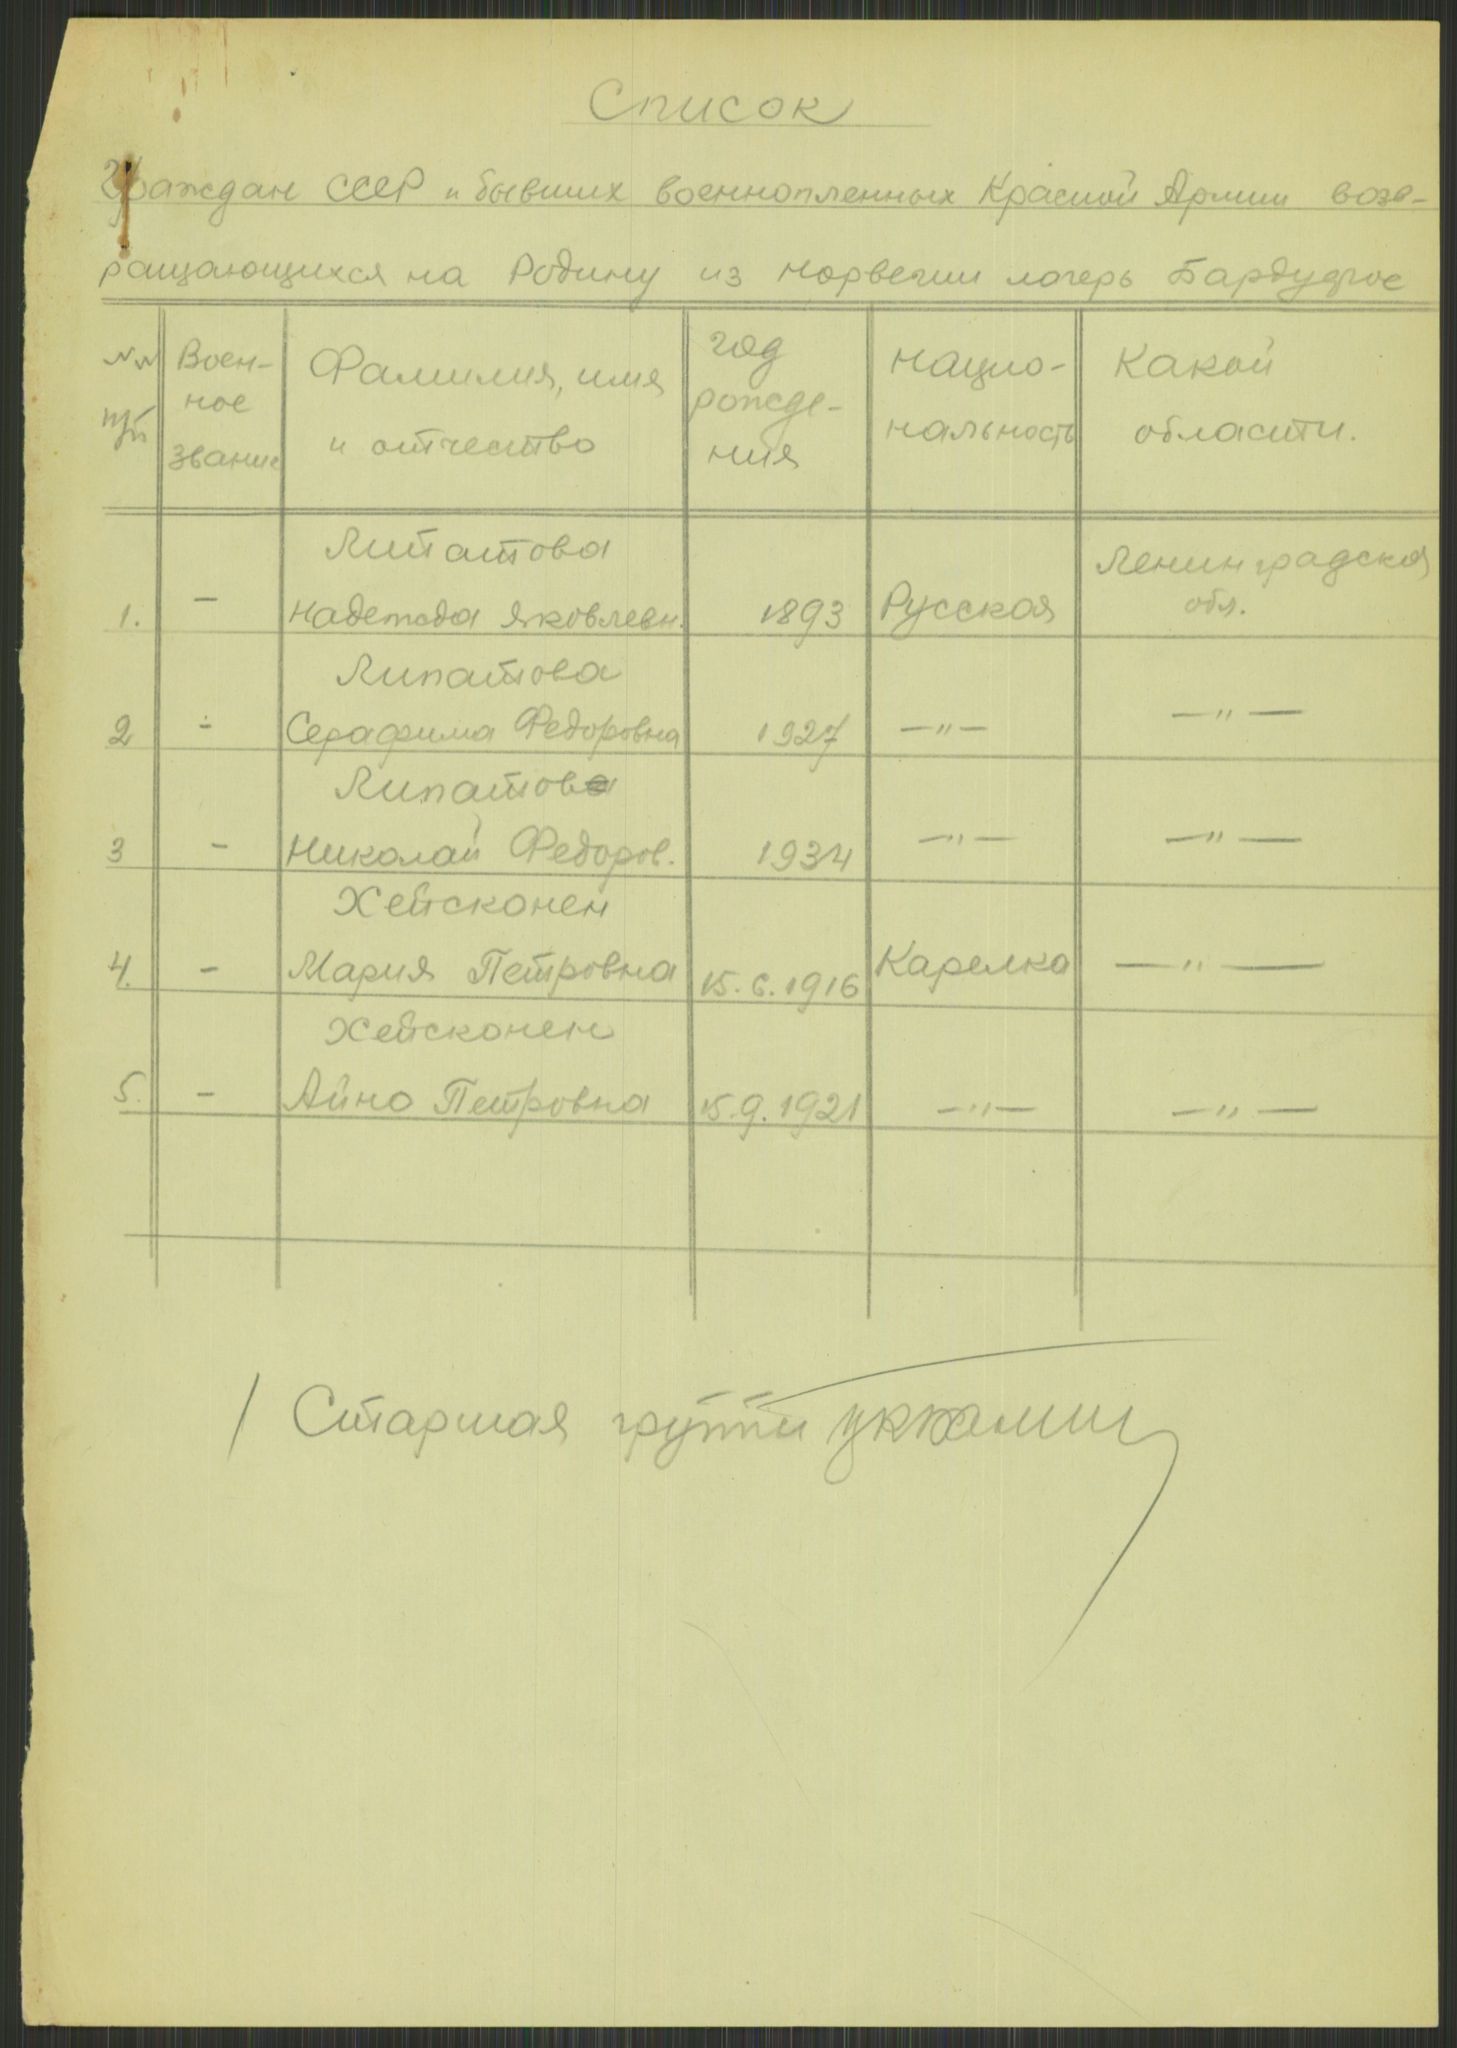 Список
Граждан СССР и бывших военнопленных Красной Армии возв-
ращающихся на Родину из Норвегии лагерь Бардуфос
№№ п/п | Воен- ное звание | Фамилия, имя и отчество | год рожде- ния | Нацио- нальность | Какой области.
Липатова
1. | - | Надежда Яковлевн. | 1893 | Русская | Ленинградская обл.
Липатова
2 | - | Серафима Федоровна | 1927 | —"— | —"—
Липатов
3 | - | Николай Федоров. | 1934 | —"— | —"—
Хейсконен
4. | - | Мария Петровна | 15.6.1916 | Карелка | —"—
Хейсконен
5. | - | Айно Петровна | 15.9.1921 | —"— | —"—
/ Старшая группы